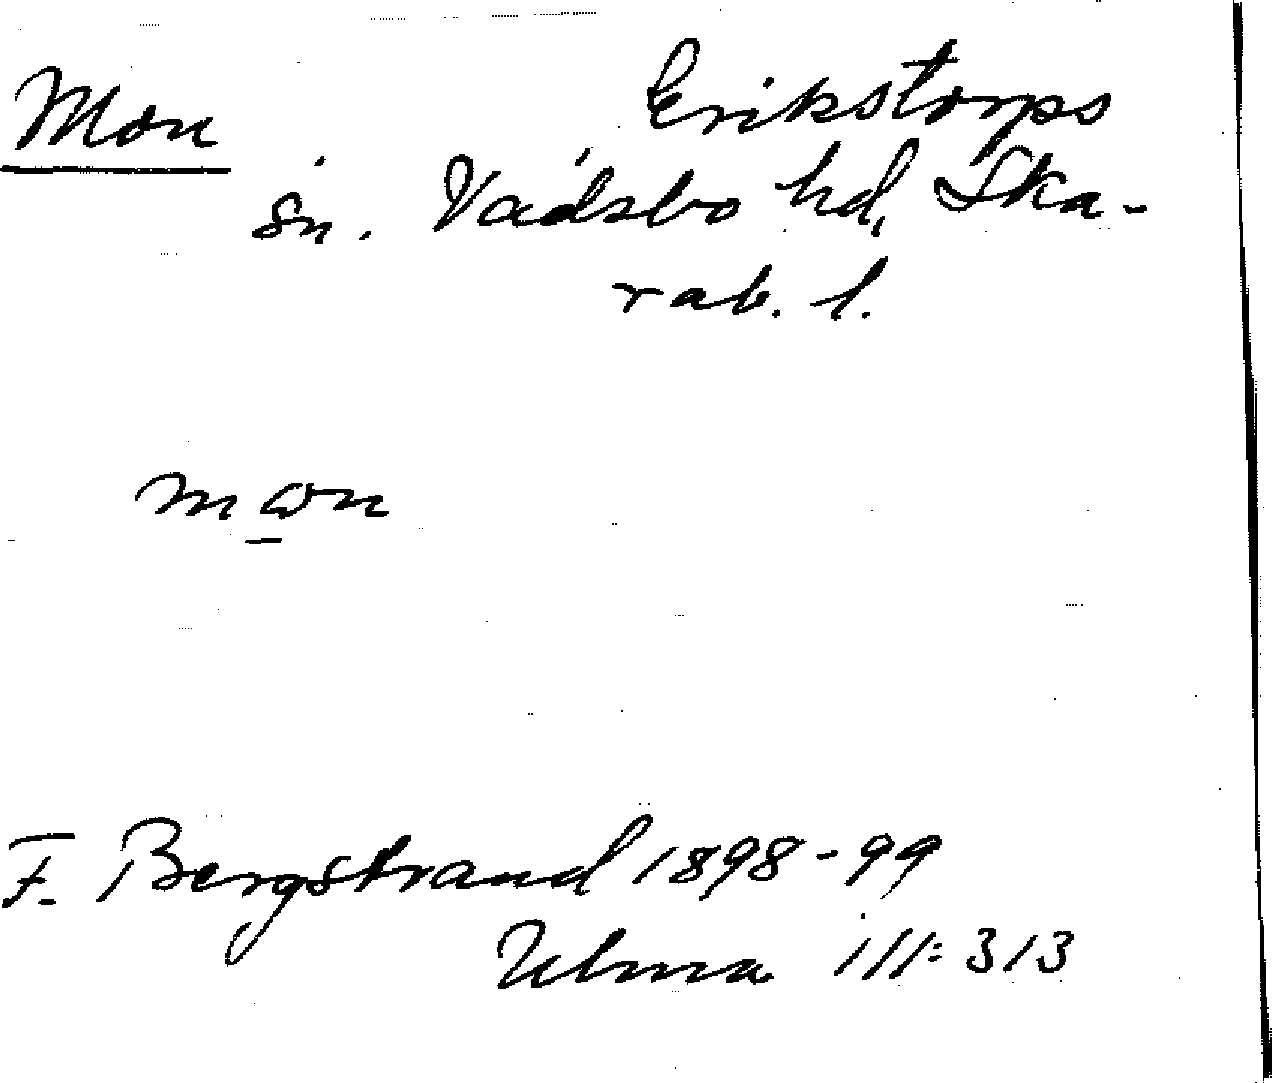 Mon Erikstorps
sn. Vadsbo hd, Ska-
rab. l.
mωn
F. Bergstrand 1898-99
Ulma 111:313